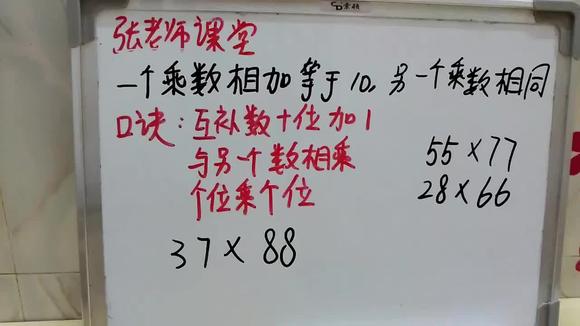 张老师课堂
一个乘数相加等于10,另一个乘数相同
口诀:互补数十位加1
与另一个数相乘
个位乘个位
55×77
28×66
37×88